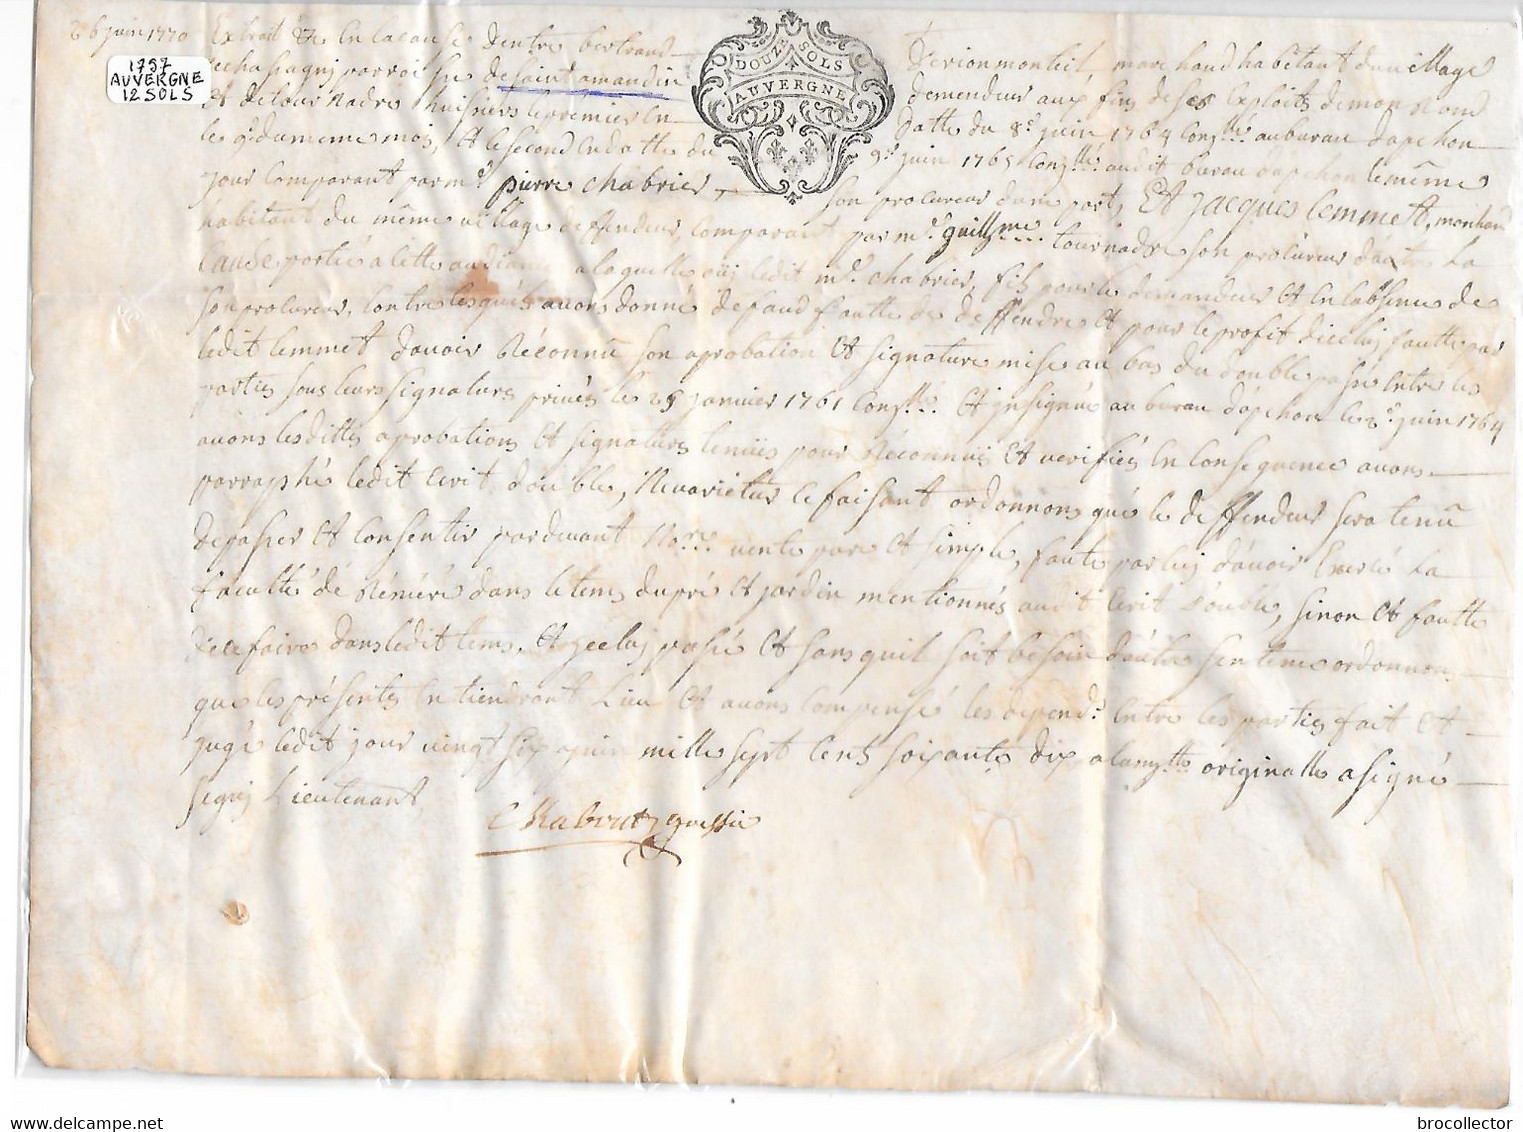 26 juin 1770
1757
AUVERGNE
12 SOLS
DOUZE SOLS
AUVERGNE
Extrait &c En la cause dentre bertrand Terion monteil, marchand habitant du village
de chassagny parroisse de saint amandin demendeur aux fins de ses Exploits de
et detournadre huissiers le premier En datte du 8e juin 1764 Conllé au bureau dapchon
le 9e du meme mois, et le second En datte du 9e juin 1765 Conllé audit bureau dapchon le même
jour Comparant par me pierre Chabrier, son procureur dune part, Et Jacques Lemmet, marchand
habitant du même village deffendeur, Comparant par me guillme tournadre son procureur dautre La
Cause portée a Cette audiance a laquelle ouj ledit me Chabrier, fils pour le demandeur Et En labsence de
son procureur, Contre lesquels avons donné defaud faulte de deffendre Et pour le profit dicelui faulte par
ledit Lemmet davoir Réconnû son aprobation Et signature mise au bas du double passé Entre les
parties sous leurs signatures privées le 25 janvier 1761 Conllé Et insignüé au bureau dapchon le 8e juin 1764
avons lesdittes aprobations Et signatures tenües pour Réconnüs Et verifiées En Consequence avons
parraphé ledit Ecrit double, Nevarietur Ce faisant ordonnons qué le deffendeur sera tenû
de passer Et Consentir pardevant Nore vente pure Et simple, faute par luj davoir Exercé La
faculté dé Réméré dans le tems du pré Et jardin mentionnés audit Ecrit double, sinon Et faulte
de ce faire dans ledit tems, Et jcelluj passé Et sans quil soit besoin dautre sentence ordonnons
que les présentes En tiendront Lieu Et avons Compensé les depends Entre les parties fait Et
jugé ledit jour vingt six juin mille sept Cents soixante dix a la mytte originalle a signé
Seguj Lieutenant
Chabrut greffié
www.delcampe.net
brocollector